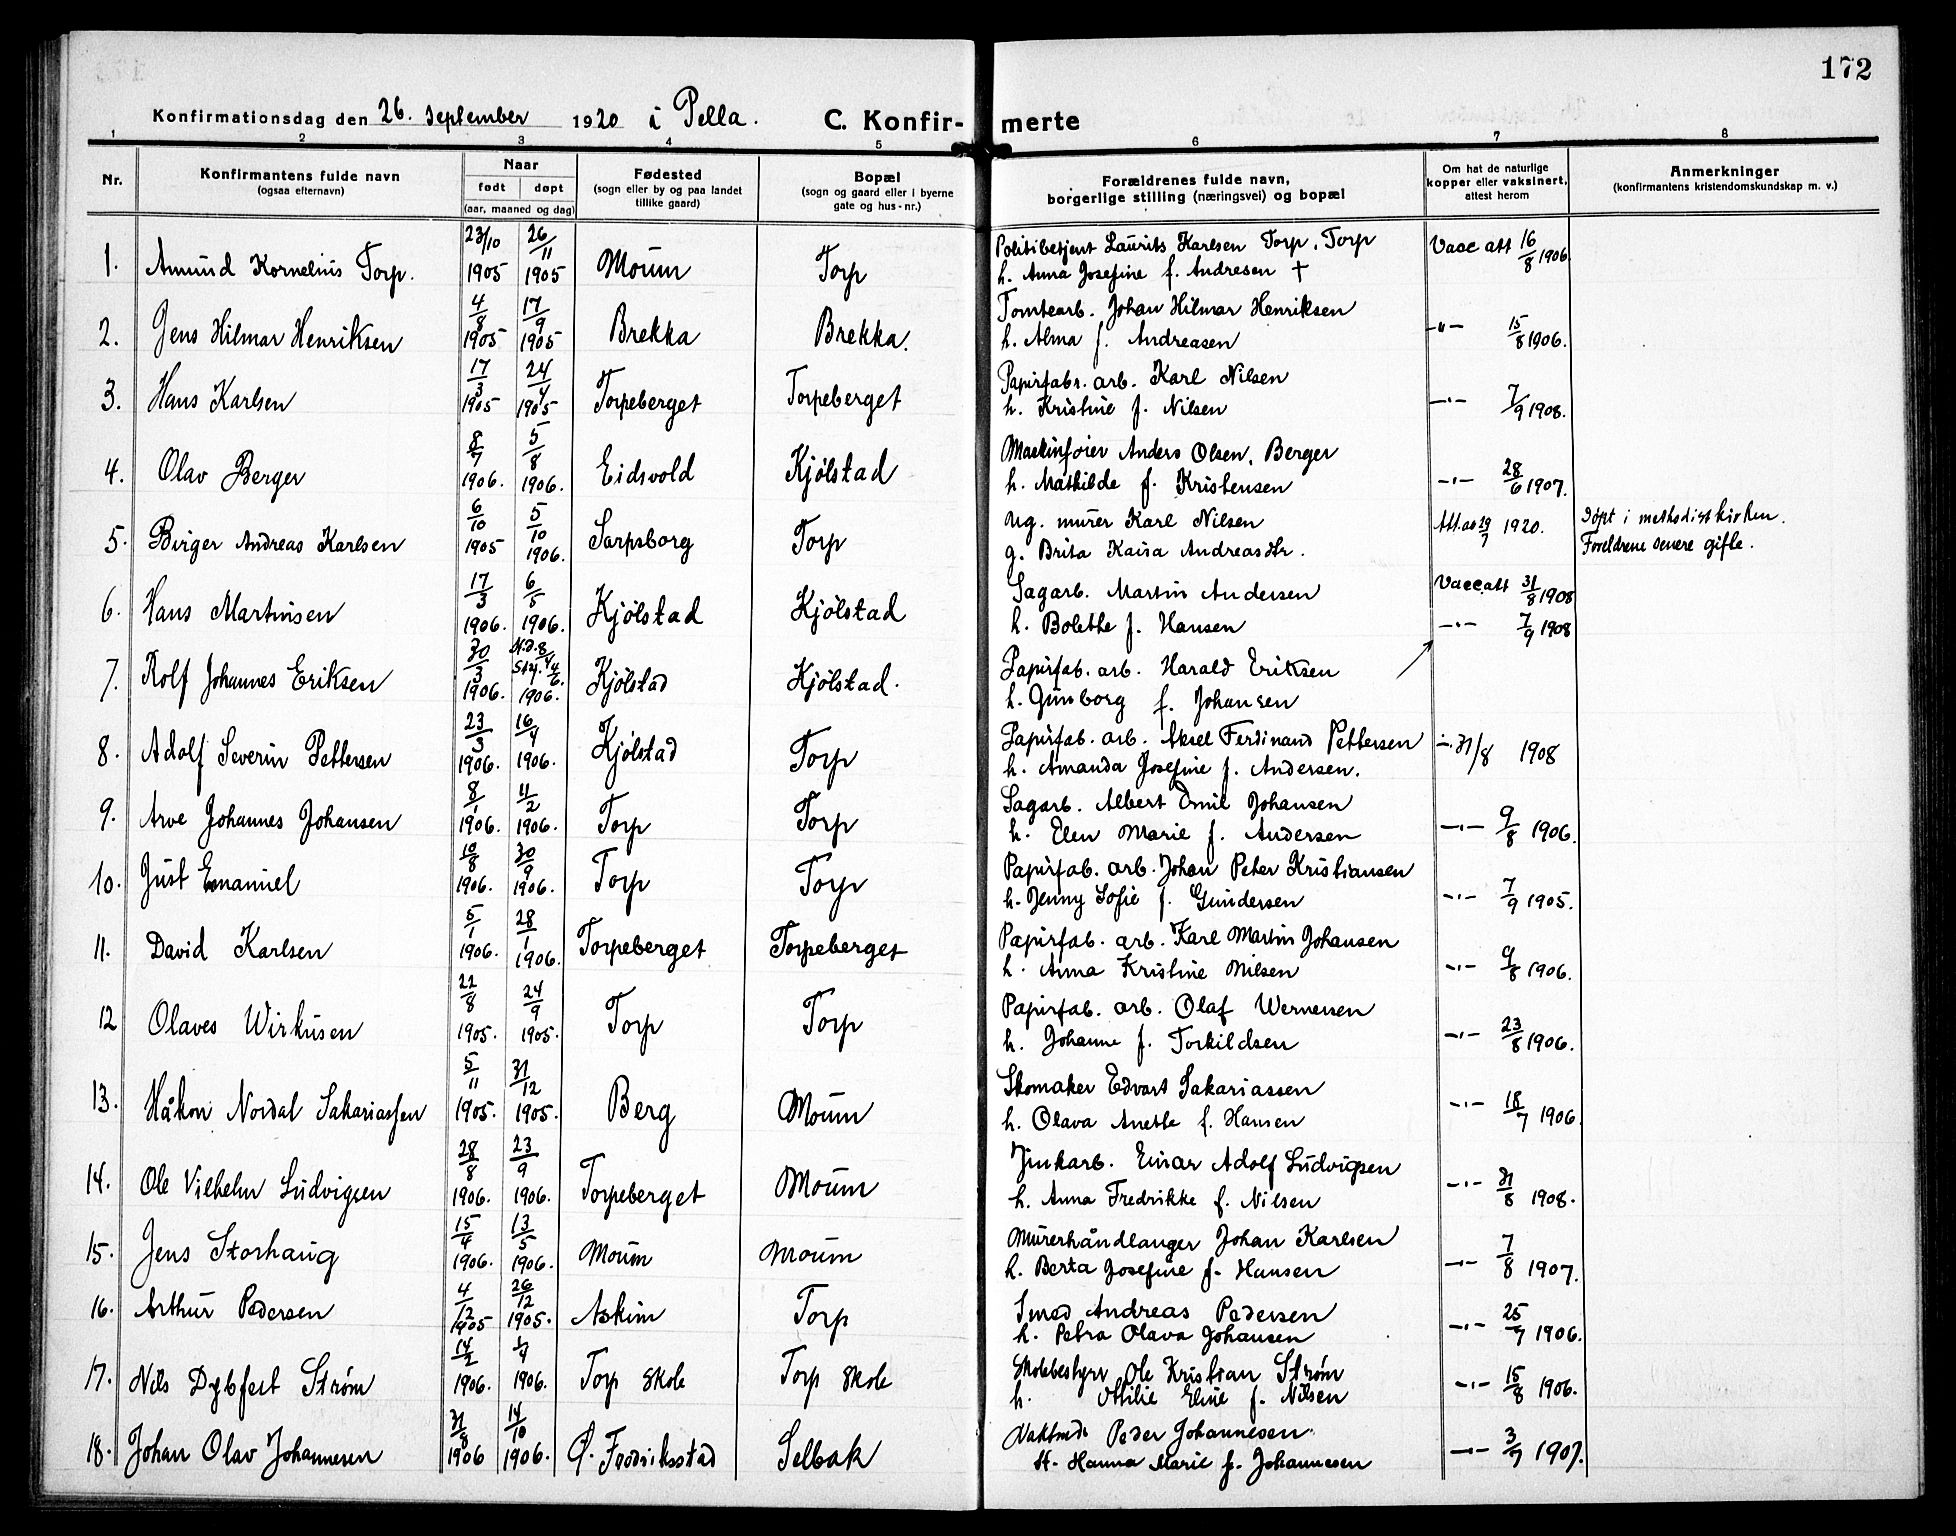 172
Konfirmationsdag den 26. september 1920 i Pella. C. Konfirmerte
1 2 3 4 5 6 7 8
Nr. Konfirmantens fulde navn (ogsaa efternavn) Naar født døpt (aar, maaned og dag) Fødested (sogn eller by og paa landet tillike gaard) Bopæl (sogn og gaard eller i byerne gate og hus-nr.) Forældrenes fulde navn, borgerlige stilling (næringsvei) og bopæl Om hat de naturlige kopper eller vaksinert, attest herom Anmerkninger (konfirmantens kristendomskundskap m. v.)
1. Amund Kornelius Torp. 23/10 1905 26/11 1905 Moum Torp Politibetjent Laurits Karlsen Torp, Torp Vacc att 16/8 1906
h. Anna Josefine f. Andresen †
2. Jens Hilmar Henriksen 4/8 1905 17/9 1905 Brekka Brekka. Tomtearb. Johan Hilmar Henriksen
h. Alma f. Andreasen -"- 15/8 1906.
3. Hans Karlsen 17/3 1905 24/4 1905 Torpeberget Torpeberget Papirfabr. arb. Karl Nilsen
h. Kristine f. Nilsen -"- 7/9 1908.
4. Olav Berger 8/7 1906. 5/8 1906. Eidsvold Kjølstad Maskinfoier Anders Olsen. Berger
h. Mathilde f. Kristensen -"- 28/6 1907.
5. Birger Andreas Karlsen 6/10 1905 5/10 1906. Sarpsborg Torp Ug. murer Karl Nilsen 1920. døpt i methodistkirken.
g. Brita Kaisa Andreasdtr. Foreldrene senere gifte.
6. Hans Martinsen 17/3 1906. 6/5 1906. Kjølstad Kjølstad Sagarb. Martin Andersen Vacc. att 31/8 1908
h. Bolethe f. Hansen -"- 7/9 1908
7. Rolf Johannes Eriksen 30/3 1906. 1906. Kjølstad Kjølstad. Papirfab. arb. Harald Eriksen
h. Gunborg f. Johansen
8. Adolf Severin Pettersen 23/3 1906. 16/4 1906. Kjølstad Torp Papirfab. arb. Aksel Ferdinand Pettersen -"- 31/8 1908
h. Amanda Josefine f. Andersen.
9. Arve Johannes Johansen 8/1 1906. 11/2 1906. Torp Torp Sagarb. Albert Emil Johansen
h. Elen Marie f. Andersen -"- 9/8 1906.
10. Just Emanuel 10/8 1906. 30/9 1906. Torp Torp Papirfab. arb. Johan Peter Kristiansen
h. Jenny Sofie f. Gundersen -"- 7/9 1905.
11. David Karlsen 5/1 1906. 28/1 1906. Torpeberget Torpeberget Papirfab. arb. Karl Martin Johansen
h. Anna Kristine Nilsen -"- 9/8 1906.
12 Olaves Wirkusen 22/8 1905. 24/9 1905. Torp Torp Papirfab. arb. Olaf Wernersen
h. Johanne f. Torkildsen -"- 23/8 1906.
13. Håkon Nordal Sakariassen 5/11 1905. 31/12 1905. Berg Moum Skomaker Edvart Sakariassen
h. Olava Anette f. Hansen -"- 18/7 1906.
14. Ole Vilhelm Ludvigsen 28/8 1906. 23/9 1906. Torpeberget Moum Jernarb. Einar Adolf Ludvigsen
h. Anna Fredrikke f. Nilsen -"- 31/8 1908.
15. Jens Storhaug 15/4 1906. 13/5 1906. Moum Moum Murerhåndlanger Johan Karlsen
h. Berta Josefine f. Hansen -"- 7/8 1907.
16. Arthur Pedersen 4/12 1905 26/12 1905. Askim Torp Smed Andreas Pedersen
h. Petra Olava Johansen -"- 25/7 1906.
17. Nils Dybfest Strøm 14/2 1906. 1/4 1906. Torp skole Torp skole Skolebestyrer Ole Kristian Strøm
h. Othilie Eline f. Nilsen -"- 15/8 1906.
18. Johan Olav Johannesen 31/8 1906 14/10 1906. Ø. Fredriksstad Selbak Peder Johannesen
H. Hanna Marie f. Johannesen -"- 3/7 1907.